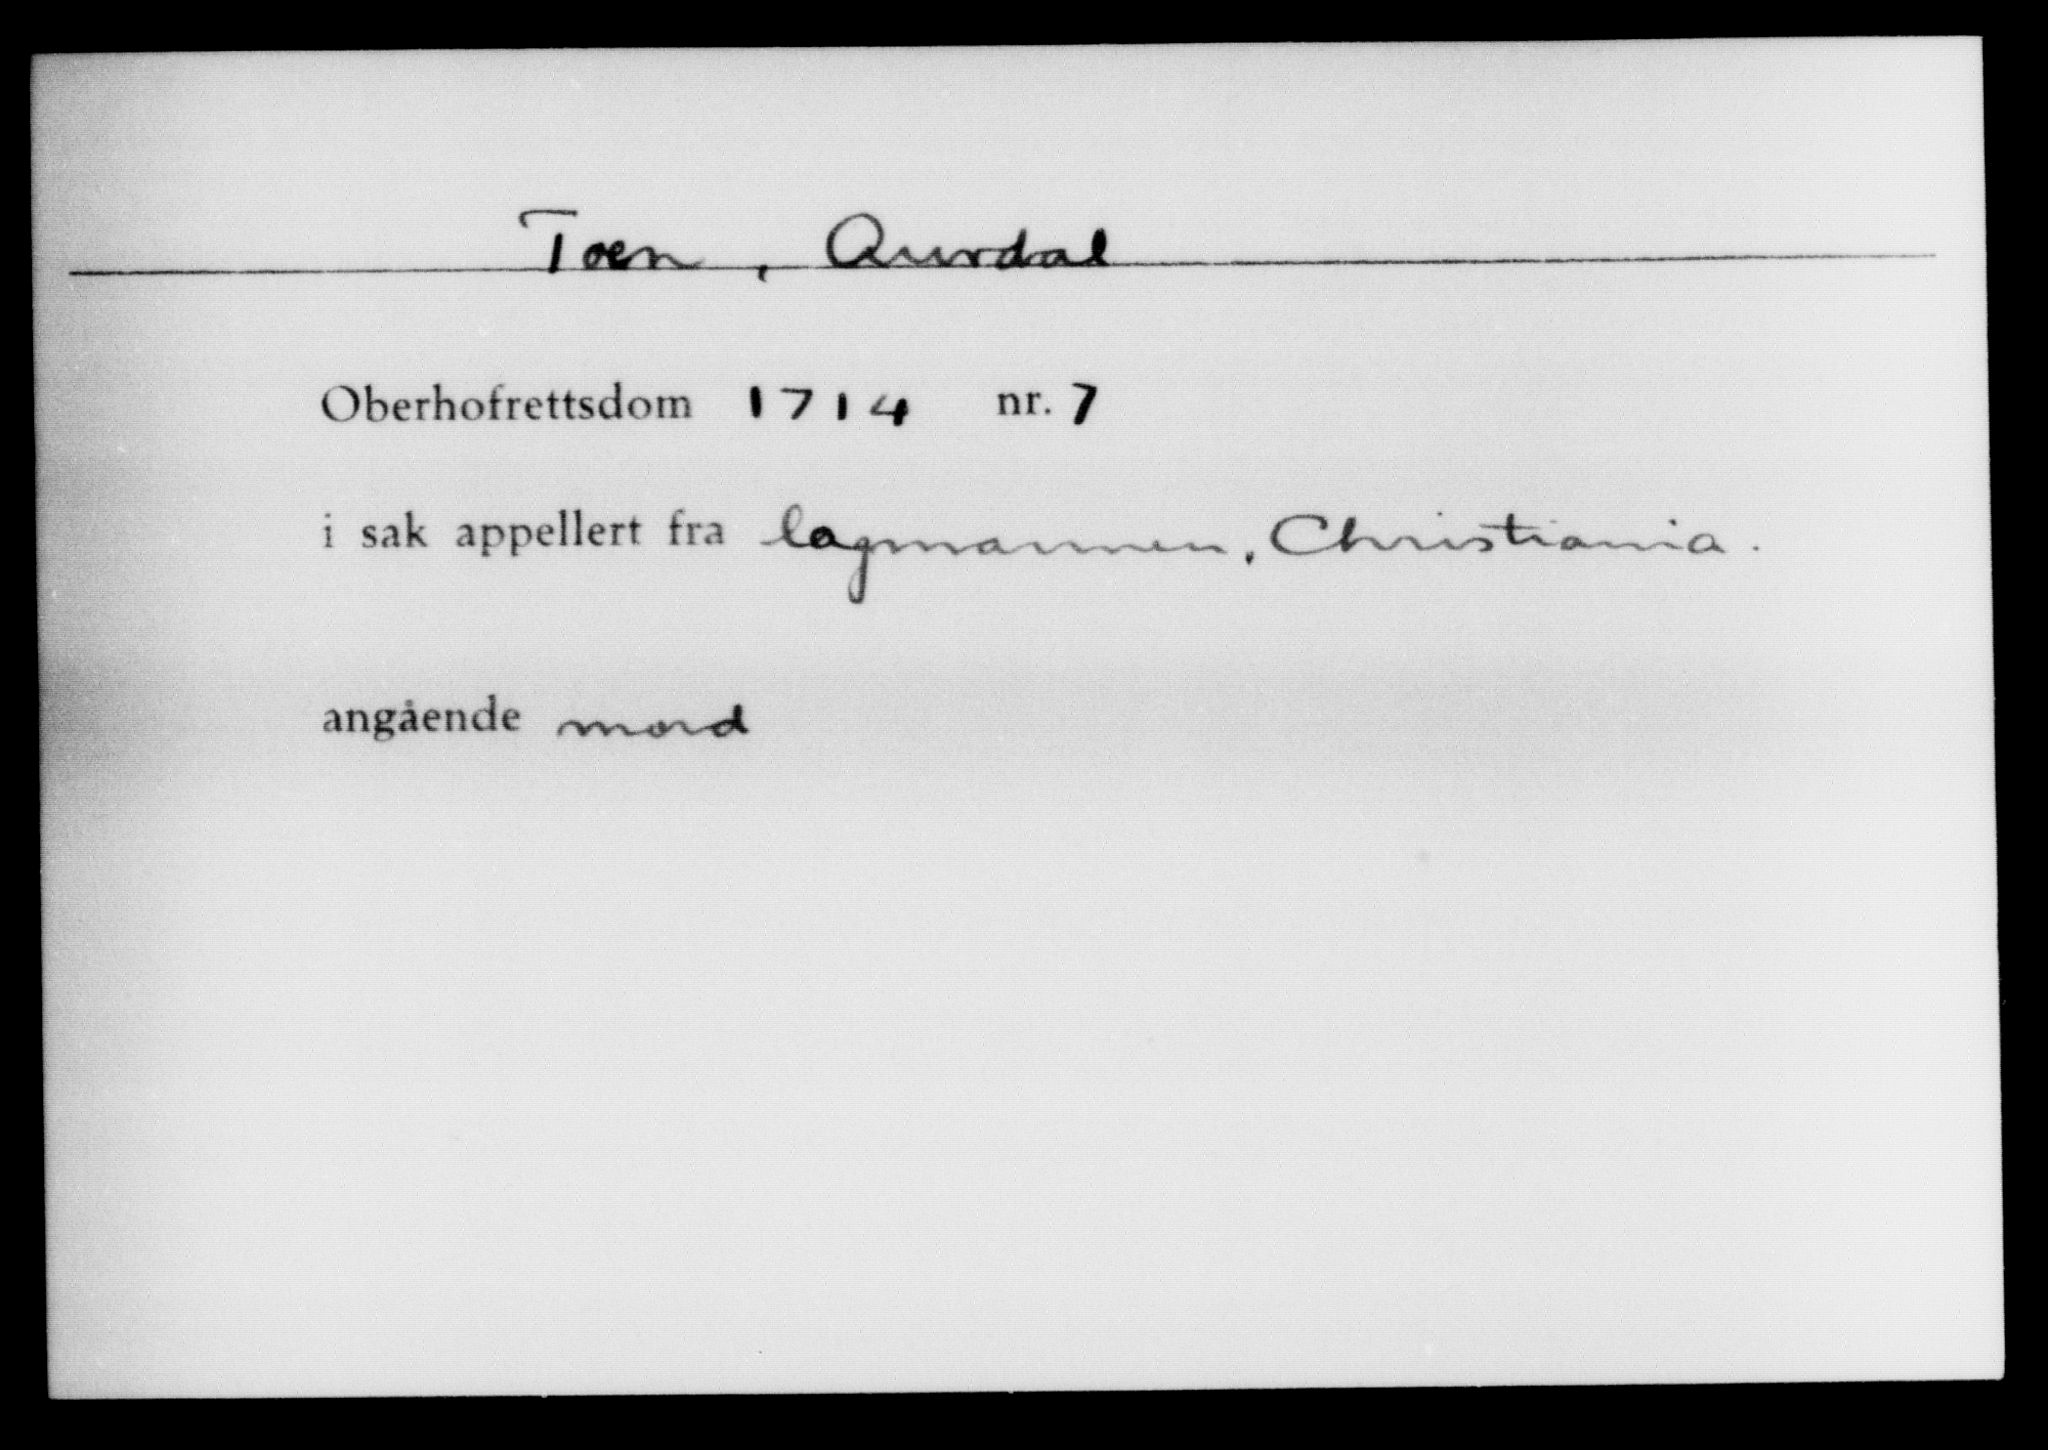 Toen, Aurdal
Oberhofrettsdom 1714 nr. 7
i sak appellert fra lagmannen, Christiania.
angående mord